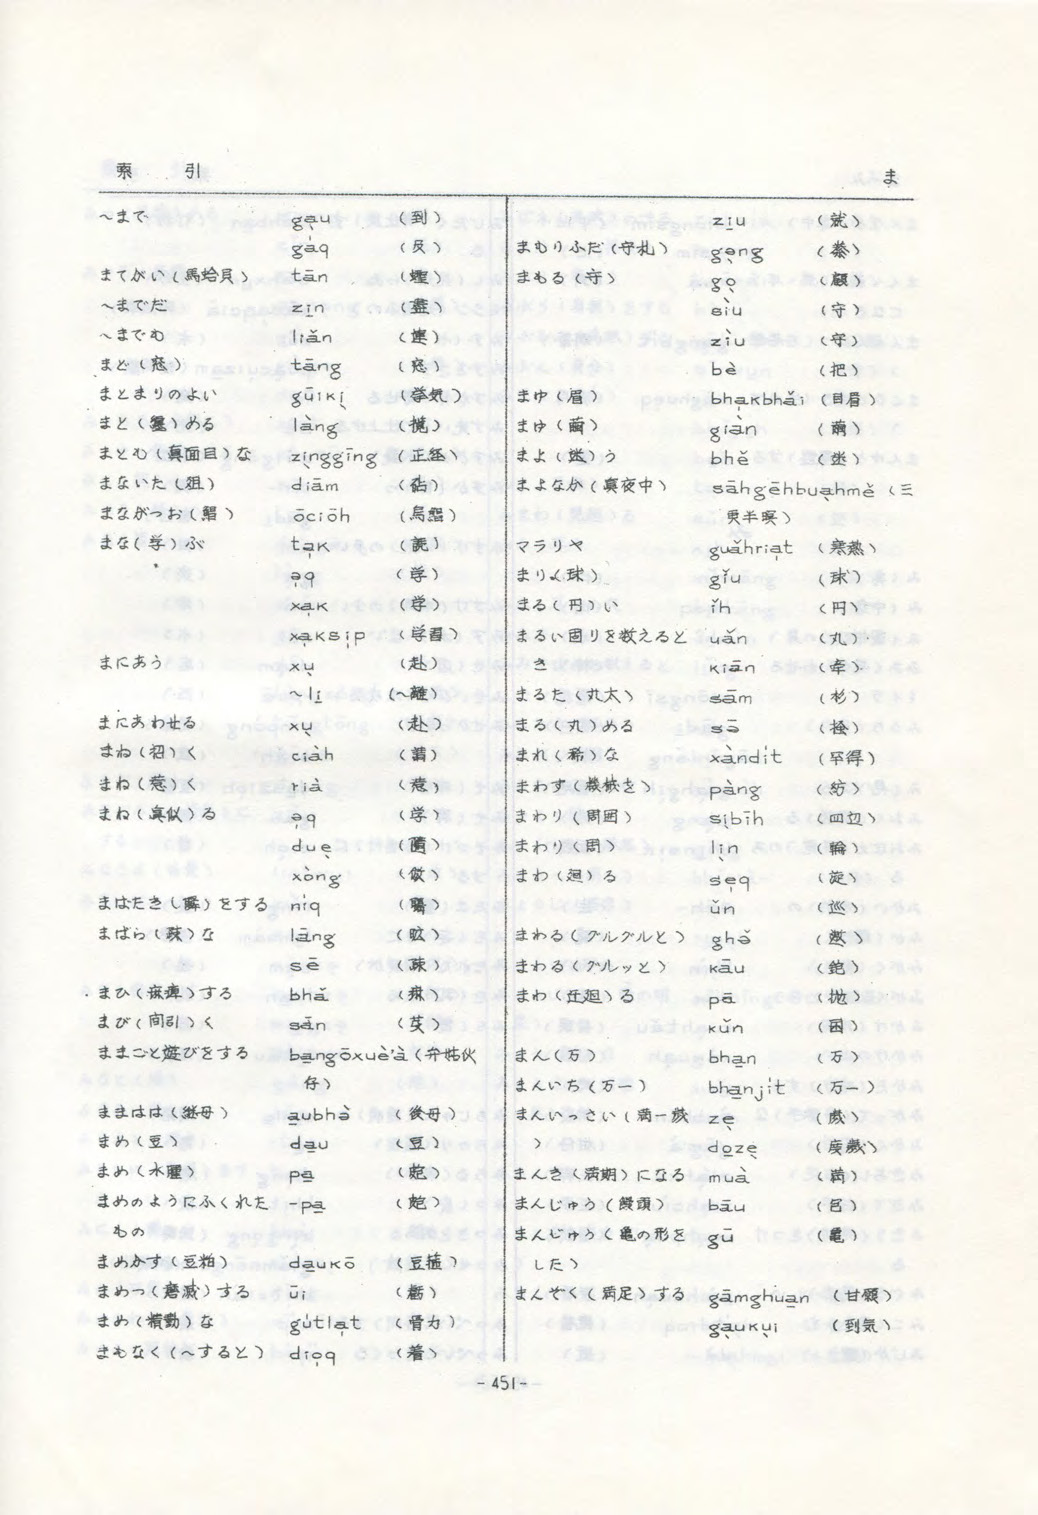 索 引
ま
～まで gạu (到)
gáq (及)
まてがい(馬蛤貝) tān (蟶)
～までだ zịn (盡)
～までも liǎn (連)
まど(窓) tāng (窓)
まとまりのよい gūikị (挙気)
まと(纏)める làng
まとも(真面目)な zịnggīng (正経)
まないた(俎) diām (砧)
まながつお(鯧) ōciōh
まな(学)ぶ tạk (読)
ạq (学)
xạk (学)
xạksịp (学習)
まにあう xụ (赴)
～lị (～離)
まにあわせる xụ (赴)
まね(招)く ciàh (請)
まね(惹)く rià (惹)
まね(真似)る əq (学)
duẹ
xòng (倣)
まばたき(瞬)をする níq
まばら(疎)な lāng
sē (疎)
まひ(麻痺)する bhǎ (痳)
まび(間引)く sān (芟)
ままごと遊びをする bangōxuè'à (弁姑伙
仔)
ままはは(継母) aubhə̀ (後母)
まめ(豆) dau (豆)
まめ(水膿) pa (皰)
まめのようにふくれた -pa (皰)
もの
まめかす(豆粕) dạukō
まめつ(磨滅)する ūi
まめ(横動)な gútlạt (骨力)
まもなく(～すると) diọq (着)
zịu (就)
まもりふだ(守札) gəng
まもる(守) gọ (顧)
siu (守)
zìu (守)
bè (把)
まゆ(眉) bhạkbhǎi (目眉)
まゆ(繭) giān (繭)
まよ(迷)う bhě (迷)
まよなか(真夜中) sāhgēhbuạhmè (三
更半暝)
マラリヤ guǎhriạt (寒熱)
まり(球) gǐu (球)
まる(円)い ǐh (円)
まるい囲りを数えると uǎn (丸)
き kiān (牽)
まるた(丸太) sām (杉)
まる(丸)める sə̄
まれ(稀)な xàndít (罕得)
まわす(機械を) pàng (紡)
まわり(周囲) sịbīh (四辺)
まわり(周) lịn (輪)
まわ(廻)る sẹq (旋)
ǔn (巡)
まわる(グルグルと) ghə̌
まわる(グルッと) kāu
まわ(迂廻)る pā (抛)
kǔn (困)
まん(万) bhạn (万)
まんいち(万一) bhạnjít (万一)
まんいっさい(満一歳 zẹ (歳)
) dọzẹ (度歳)
まんき(満期)になる muà (満)
まんじゅう(饅頭) bāu (包)
まんじゅう(亀の形を gū (亀)
した)
まんぞく(満足)する gāmghuạn (甘願)
gạukụi (到気)
-451-